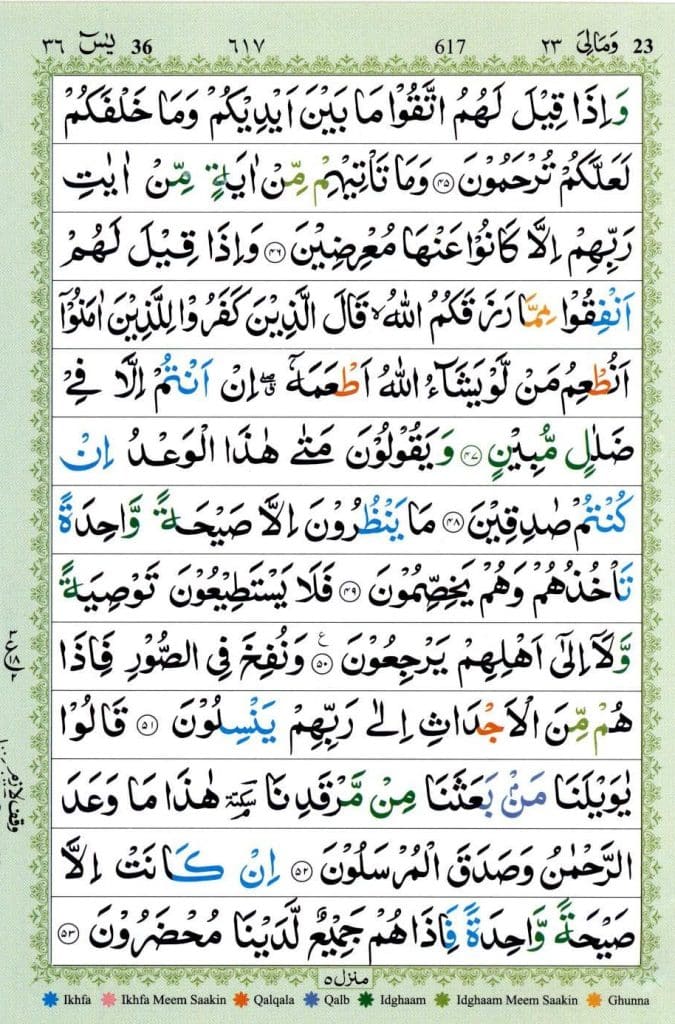 23 وَمَالِيَ ٢٣ 617 ٦١٧ 36 يٰسٓ ٣٦
وَاِذَا قِيْلَ لَهُمُ اتَّقُوْا مَا بَيْنَ اَيْدِيْكُمْ وَمَا خَلْفَكُمْ
لَعَلَّكُمْ تُرْحَمُوْنَ ﴿۴۵﴾ وَمَا تَاْتِيْهِمْ مِّنْ اٰيَةٍ مِّنْ اٰيٰتِ
رَبِّهِمْ اِلَّا كَانُوْا عَنْهَا مُعْرِضِيْنَ ﴿۴۶﴾ وَاِذَا قِيْلَ لَهُمْ
اَنْفِقُوْا مِمَّا رَزَقَكُمُ اللّٰهُ ۙ قَالَ الَّذِيْنَ كَفَرُوْا لِلَّذِيْنَ اٰمَنُوْۤا
اَنُطْعِمُ مَنْ لَّوْ يَشَآءُ اللّٰهُ اَطْعَمَهٗۤ ۖ اِنْ اَنْتُمْ اِلَّا فِيْ
ضَلٰلٍ مُّبِيْنٍ ﴿۴۷﴾ وَيَقُوْلُوْنَ مَتٰى هٰذَا الْوَعْدُ اِنْ
كُنْتُمْ صٰدِقِيْنَ ﴿۴۸﴾ مَا يَنْظُرُوْنَ اِلَّا صَيْحَةً وَّاحِدَةً
تَاْخُذُهُمْ وَهُمْ يَخِصِّمُوْنَ ﴿۴۹﴾ فَلَا يَسْتَطِيْعُوْنَ تَوْصِيَةً
وَّلَاۤ اِلٰۤى اَهْلِهِمْ يَرْجِعُوْنَ ﴿۵۰﴾ ع وَنُفِخَ فِى الصُّوْرِ فَاِذَا
هُمْ مِّنَ الْاَجْدَاثِ اِلٰى رَبِّهِمْ يَنْسِلُوْنَ ﴿۵۱﴾ قَالُوْا
يٰوَيْلَنَا مَنْۢ بَعَثَنَا مِنْ مَّرْقَدِنَا سكتة هٰذَا مَا وَعَدَ
الرَّحْمٰنُ وَصَدَقَ الْمُرْسَلُوْنَ ﴿۵۲﴾ اِنْ كَانَتْ اِلَّا
صَيْحَةً وَّاحِدَةً فَاِذَا هُمْ جَمِيْعٌ لَّدَيْنَا مُحْضَرُوْنَ ﴿۵۳﴾
وقف لازم
منزل ۵
Ikhfa Ikhfa Meem Saakin Qalqala Qalb Idghaam Idghaam Meem Saakin Ghunna